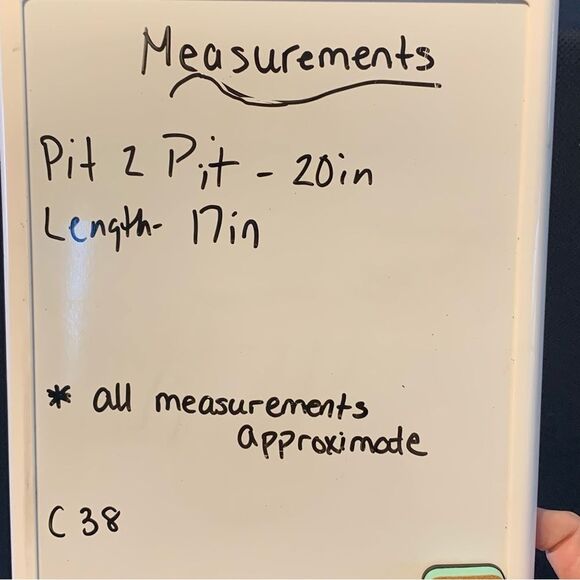 Measurements
Pit 2 Pit - 20in
Length- 17in
* all measurements
approximate
C 38